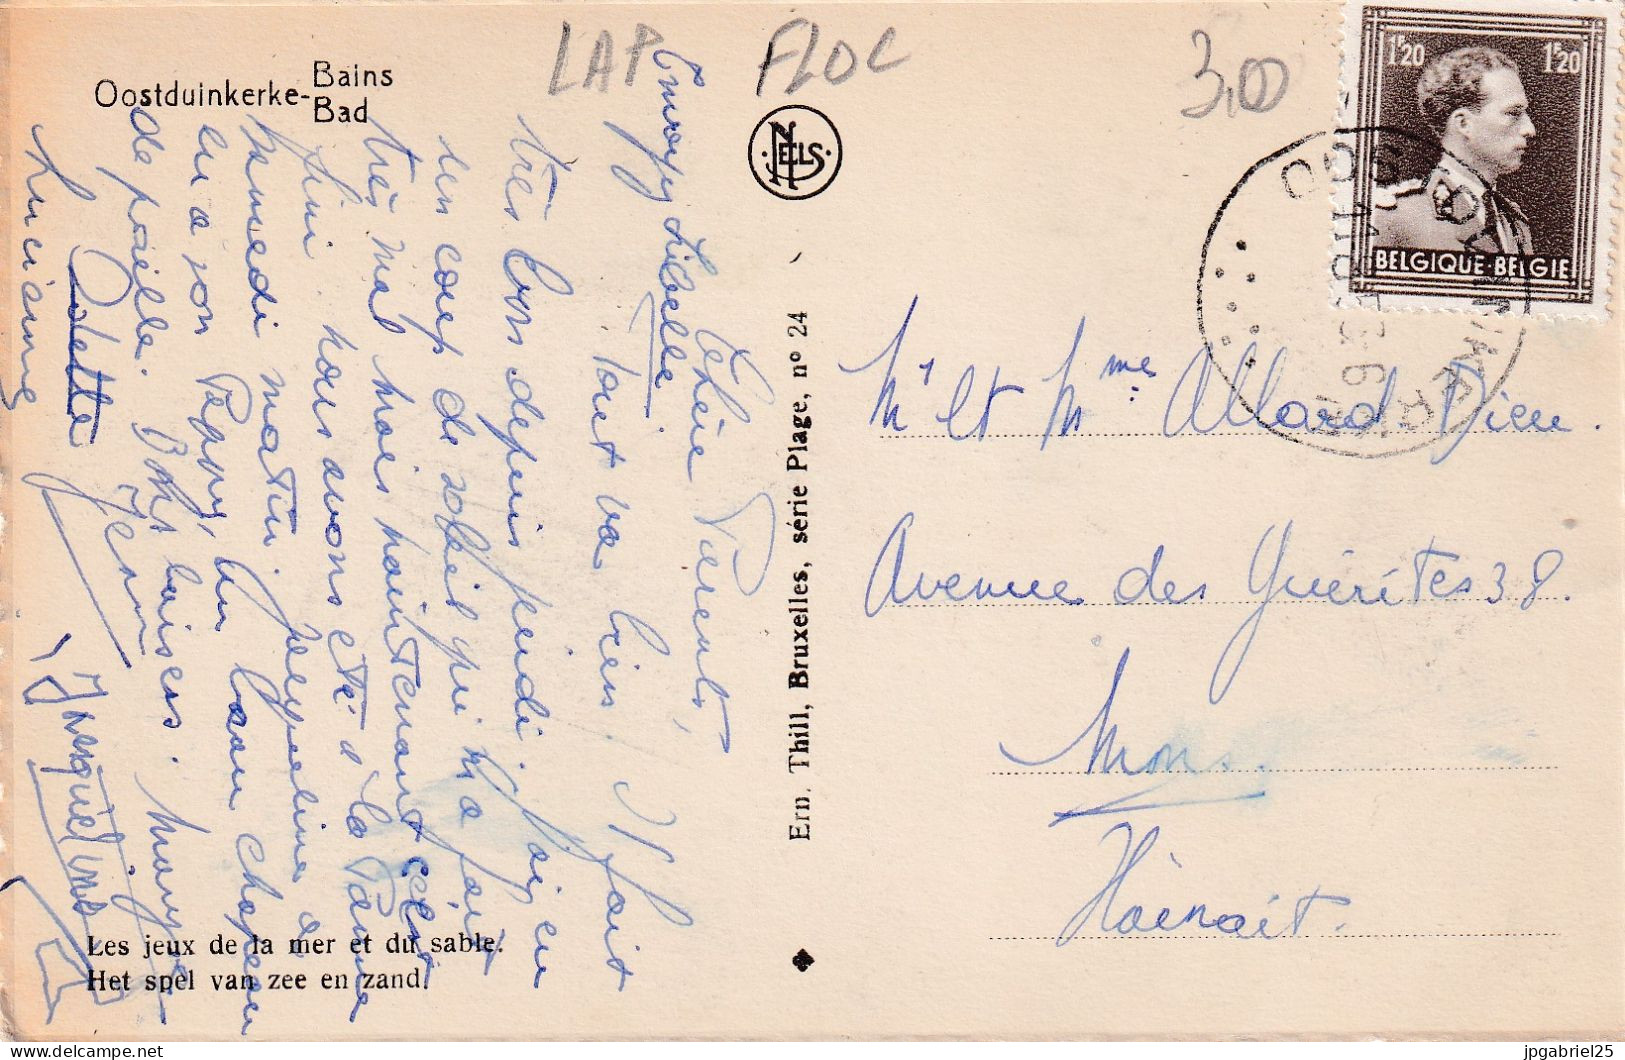 LAP FLOC 3,00
Oostduinkerke-Bains
Bad
NELS
1F20 1F20
BELGIQUE-BELGIE
Chère Parents,
Tout va bien. Il fait
très bon depuis jeudi. J'ai eu
un coup de soleil qui m'a fait
très mal mais maintenant c'est
fini. nous avons été à la Panne
samedi matin. Jacqueline a
eu a son Pappy, un beau chapeau
de paille. Bons baisers.
Lucienne
Odette
Jenny
Ern. Thill, Bruxelles, série Plage, nº 24
Mr et Mme Allard-Dieu.
Avenue des Guérites 38.
Mons.
Hainait.
Les jeux de la mer et du sable.
Het spel van zee en zand.
delcampe.net
jpgabriel25